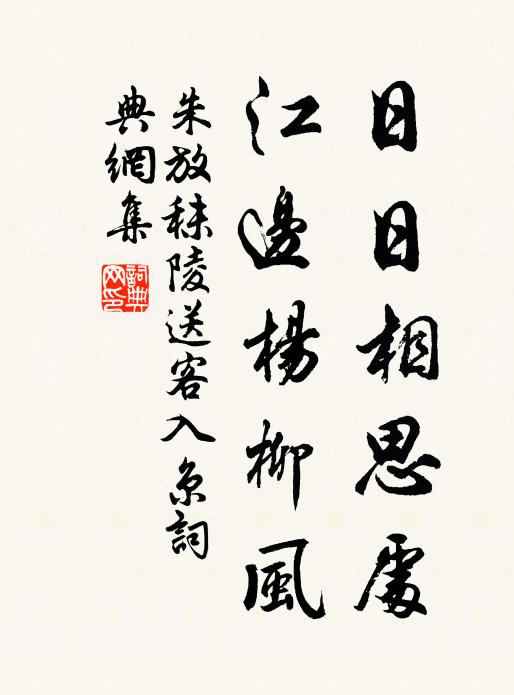 日日相思處
江邊楊柳風
朱放秣陵送客入京詞
典網集
詞典
网印